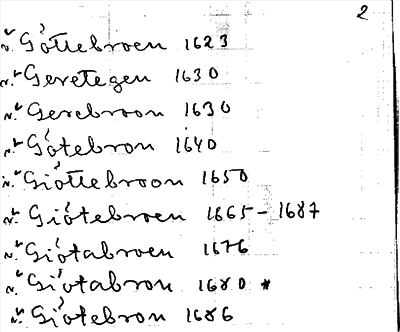 2
v. Göttebroen 1623
v. Geretegen 1630
v. Gerebroon 1630
v. Götebron 1640
v. Giöttebroon 1650
v. Giötebroen 1665-1687
v. Giötabroen 1676
v. Giötabron 1680 *
v. Giötebron 1686